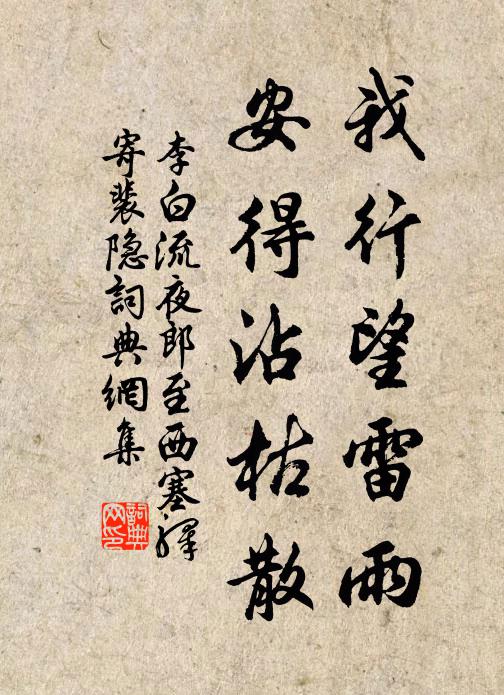 我行望雷雨
安得沾枯散
李白流夜郎至西塞驿
寄裴隐詞典網集
詞典
网印